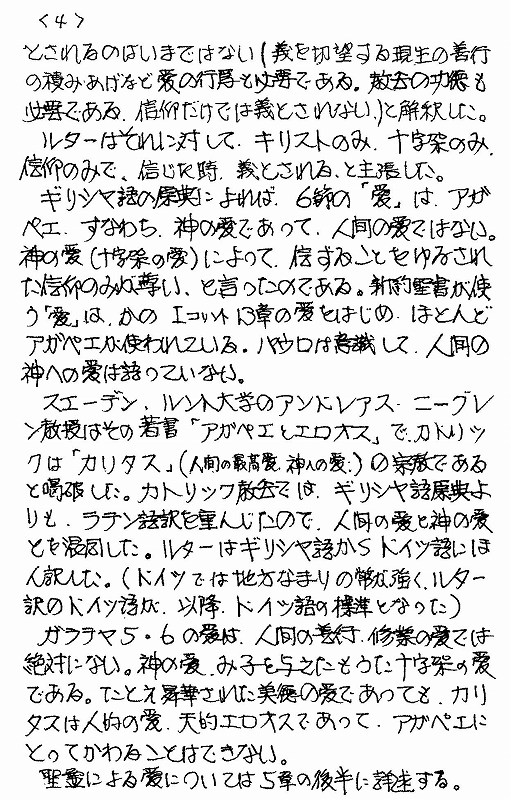 <4>
とされるのはいまではない(義を切望する現生の善行
の積みあげなど愛の行為と必要である。教会の功徳も
必要である、信仰だけでは義とされない)と解釈した。
ルターはそれに対して、キリストのみ、十字架のみ、
信仰のみで、信じた時、義とされる、と主張した。
ギリシャ語の原典によれば、6節の「愛」は、アガ
ペエ、すなわち、神の愛であって、人間の愛ではない。
神の愛(十字架の愛)によって、信ずることをゆるされ
た信仰のみが尊い、と言ったのである。新約聖書が使
う「愛」は、かの Iコリント13章の愛をはじめ、ほとんど
アガペエが使われている。パウロは意識して、人間の
神への愛は語っていない。
スエーデン、ルンド大学のアンドレアス・ニーグレ
ン教授はその著書「アガペエとエロオス」で、カトリッ
クは「カリタス」(人間の最高愛、神人の愛、)の宗教である
と喝破した。カトリック教会では、ギリシャ語原典よ
りも、ラテン語訳を重んじたので、人間の愛と神の愛
とを混同した。ルターはギリシャ語からドイツ語にほ
ん訳した。(ドイツでは地方なまりの幣が強く、ルター
訳のドイツ語が、以降、ドイツ語の標準となった)
ガラテヤ5・6の愛は、人間の善行、修業の愛では
絶対にない。神の愛、み子を与えたもうた十字架の愛
である。たとえ昇華された美徳の愛であっても、カリ
タスは人的の愛、天的エロオスであって、アガペエに
とってかわることはできない。
聖霊による愛については5章の後半に詳述する。